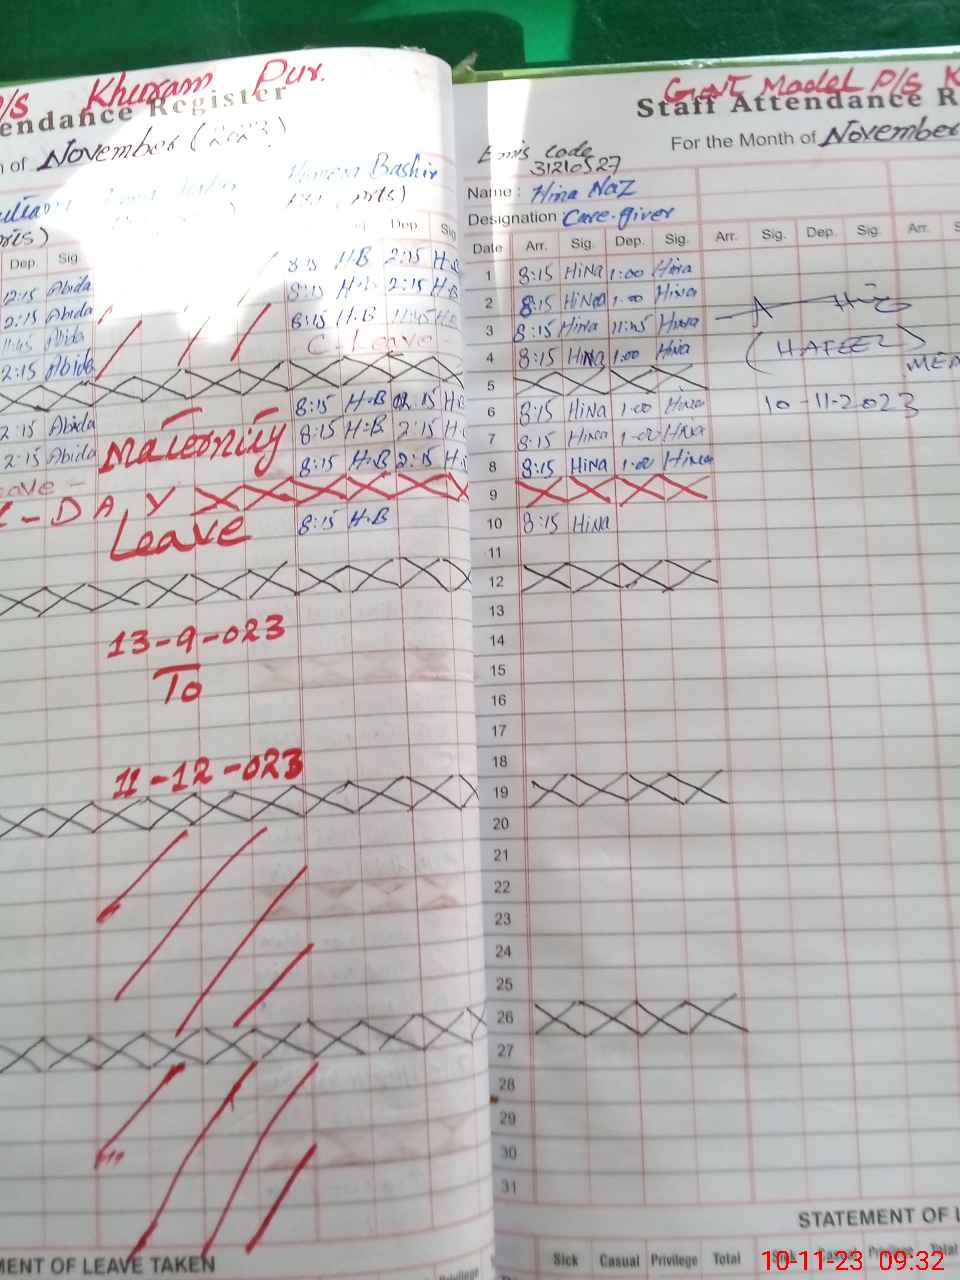 P/S Khuram Pur.
endance Register
of November (2023)
Humera Bashir
Dep. Sig
Dep. Sig
12:15 Abida
8:15 H.B 2:15 H.B
2:15 Abida
8:15 H.B 2:15 H.B
11:45 Abida
8:15 H.B 11:45 H.B
2:15 Abida
C-Leave-
2:15 Abida
8:15 H.B 2:15
Maternity
8:15 H.B 2:15
2:15 Abida
8:15 H.B 2:15
eave -
L-DAY
Leave
8:15 H.B
13-9-023
To
11-12-023
MENT OF LEAVE TAKEN
Privilege
Govt Model P/S K
Staff Attendance R
For the Month of November
Emis Code
31210527
Name : Hina Naz
Designation Care-giver
Date Arr. Sig. Dep. Sig. Arr. Sig. Dep. Sig. Arr. S
1 8:15 HiNa 1:00 Hina
2 8:15 HiNa 1:00 Hina
3 8:15 Hina 11:45 Hina
4 8:15 HiNa 1:00 Hina
(HAFEEZ)
MEA
5
6 8:15 HiNa 1:00 Hina
10-11-2023
7 8:15 HiNa 1:00 HiNa
8 8:15 HiNa 1:00 Hina
9
10 8:15 HiNa
11
12
13
14
15
16
17
18
19
20
21
22
23
24
25
26
27
28
29
30
31
STATEMENT OF L
Sick Casual Privilege Total Sick Casual Privilege Total
10-11-23 09:32